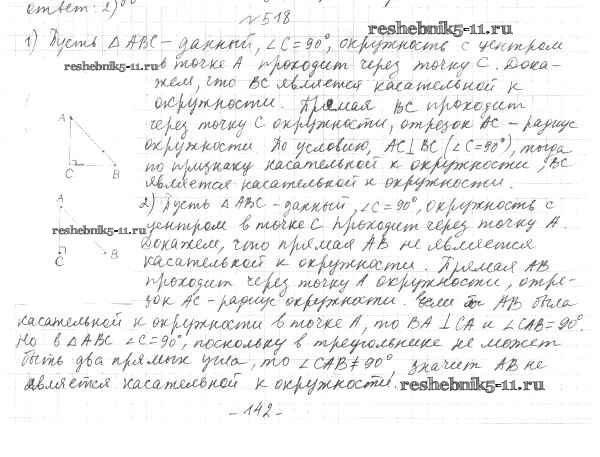 ответ: 2)
№518
reshebnik5-11.ru
1) Пусть △ ABC – данный, ∠C=90°, окружность с центром
в точке A проходит через точку C. Дока-
reshebnik5-11.ru
жем, что BC является касательной к
окружности. Прямая BC проходит
через точку C окружности, отрезок AC – радиус
окружности. По условию, AC⊥BC (∠C=90°), тогда
по признаку касательной к окружности, BC
является касательной к окружности.
A
C B
2) Пусть △ ABC – данный, ∠C=90°, окружность с
центром в точке C проходит через точку A.
reshebnik5-11.ru
Докажем, что прямая AB не является
касательной к окружности. Прямая AB
проходит через точку A окружности, отре-
зок AC – радиус окружности. Если б AB была
A
C B
касательной к окружности в точке A, то BA ⊥ CA и ∠CAB=90°.
Но в △ABC ∠C=90°, поскольку в треугольнике не может
быть два прямых угла, то ∠CAB≠90°, значит AB не
является касательной к окружности.
reshebnik5-11.ru
– 142 –